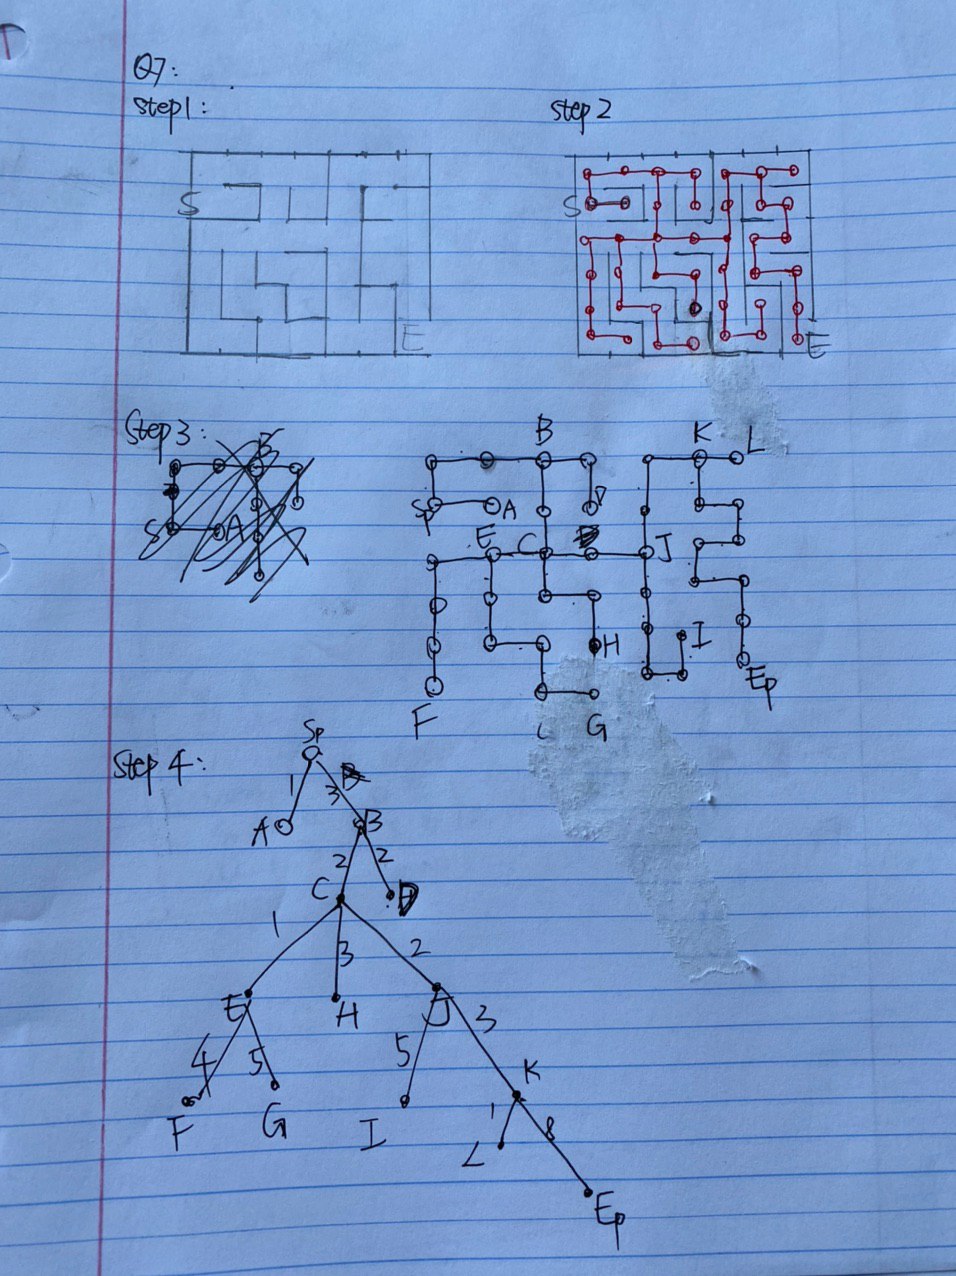 Q7:
Step1:
step 2
S
E
S
E
Step3:
B
S
A
B
K
L
Sp
A
D
E
C
J
H
I
Ep
F
G
Step 4:
Sp
1
3
A
B
2
2
C
D
1
3
2
E
H
J
4
5
5
3
F
G
I
K
1
8
L
Ep